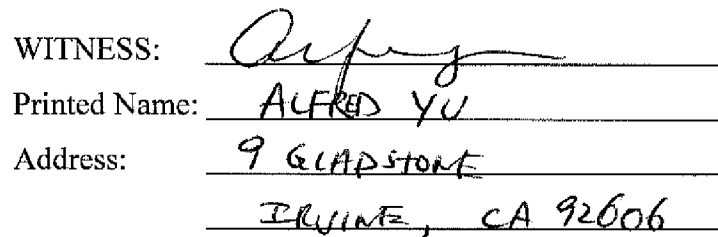 WITNESS:
Printed Name: ALFRED YU
Address: 9 GLADSTONE
IRVINE, CA 92606